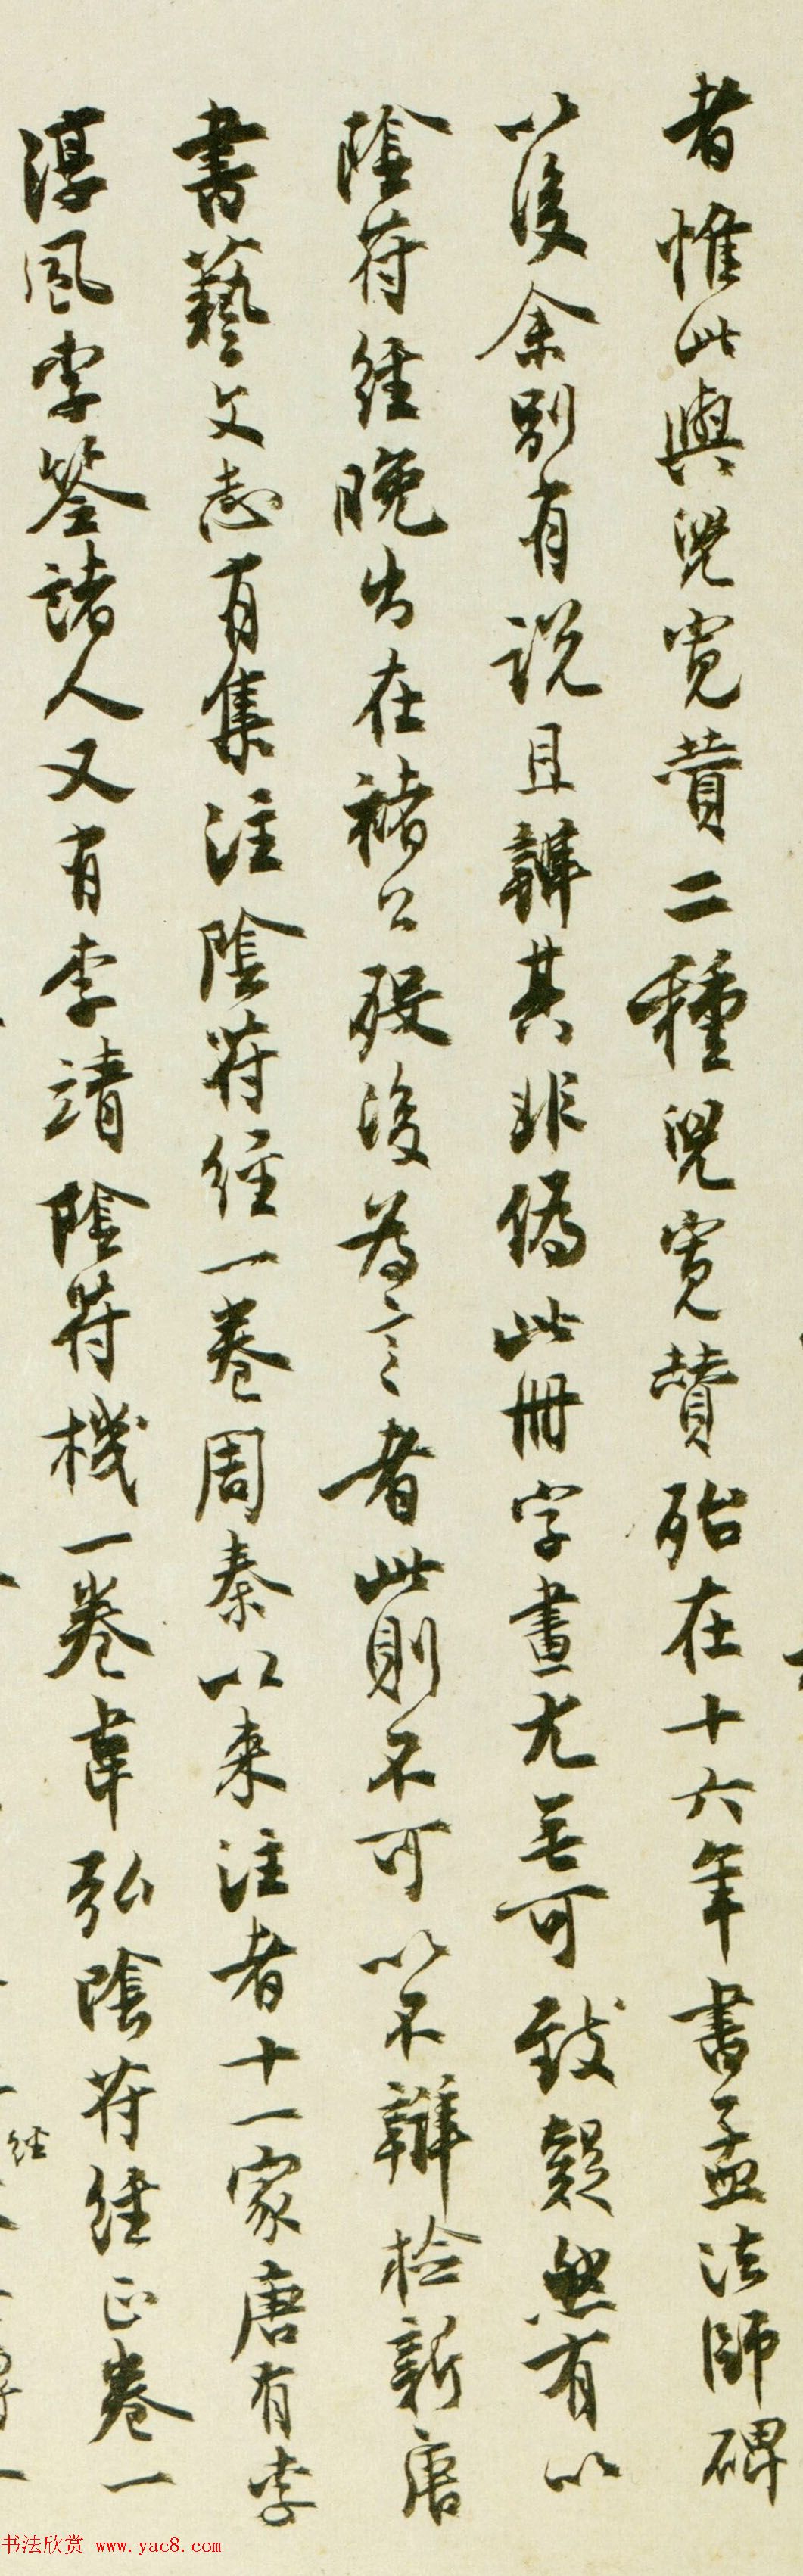 者惟此與兒寬贊二種兒寬贊殆在十六年書孟法師碑
以後余別有說且辯其非偽此冊字畫尤無可致疑然有以
陰符經晚出在褚公歿後為言者此則不可以不辯檢新唐
書藝文志有集注陰符經一卷周秦以來注者十一家唐有李
淳風李筌諸人又有李靖陰符機一卷韋弘陰符經正卷一
經
书法欣赏 www.yac8.com